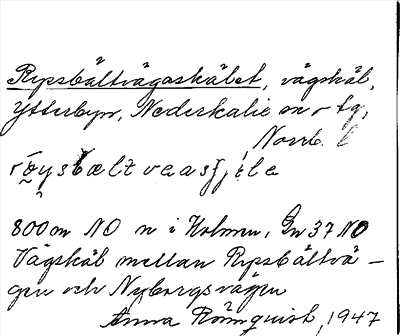 Rysbältvägaskälet, vägskäl,
Ytterbyn, Nederkalix sn o tg,
Norrb. l
800 m NO n i Holmen, Gn 37 NO
Vägskäl mellan Rysbältvä-
gen och Nyborgsvägen
Anna Rönnquist, 1947